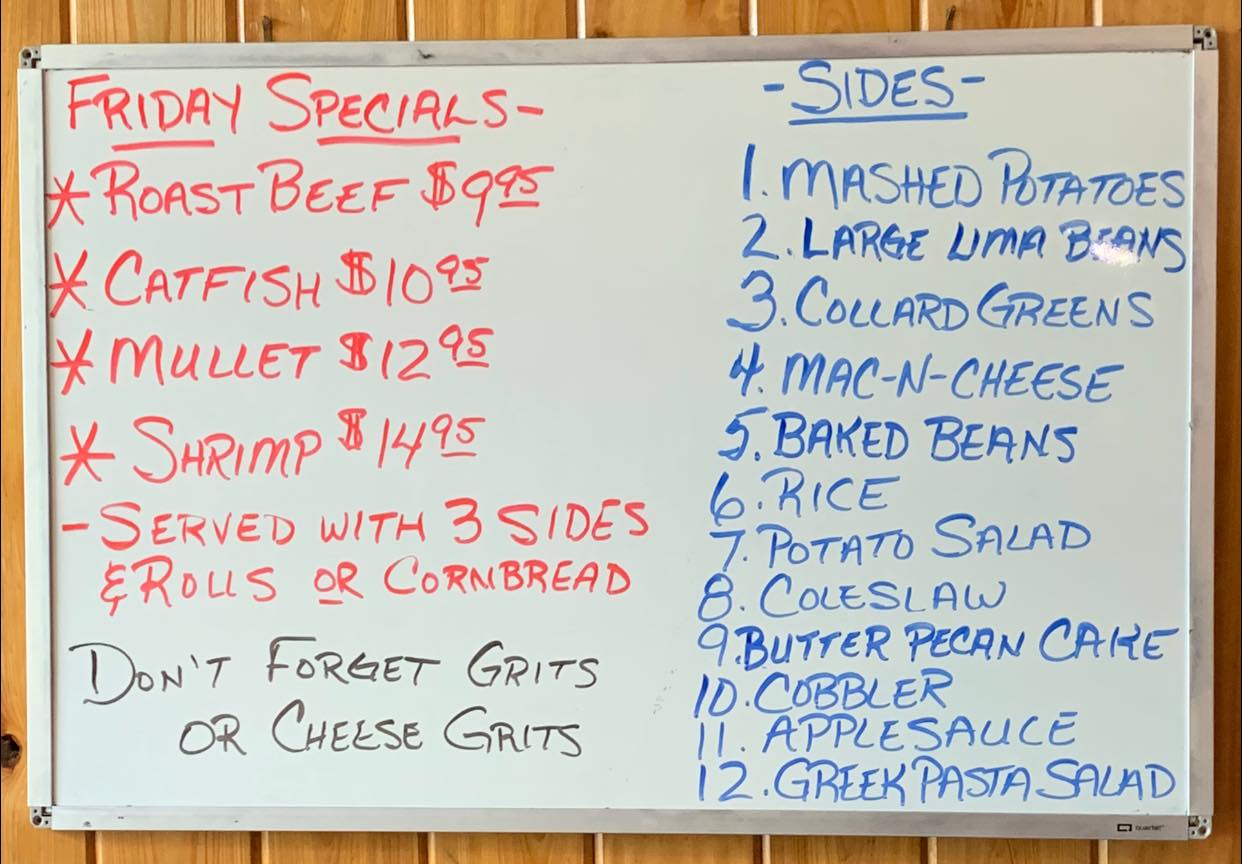 FRIDAY SPECIALS-
* ROAST BEEF $9.95
* CATFISH $10.95
* MULLET $12.95
* SHRIMP $14.95
- SERVED WITH 3 SIDES
& ROLLS OR CORNBREAD
DON'T FORGET GRITS
OR CHEESE GRITS
- SIDES -
1. MASHED POTATOES
2. LARGE LIMA BEANS
3. COLLARD GREENS
4. MAC-N-CHEESE
5. BAKED BEANS
6. RICE
7. POTATO SALAD
8. COLESLAW
9. BUTTER PECAN CAKE
10. COBBLER
11. APPLESAUCE
12. GREEK PASTA SALAD
Quartet